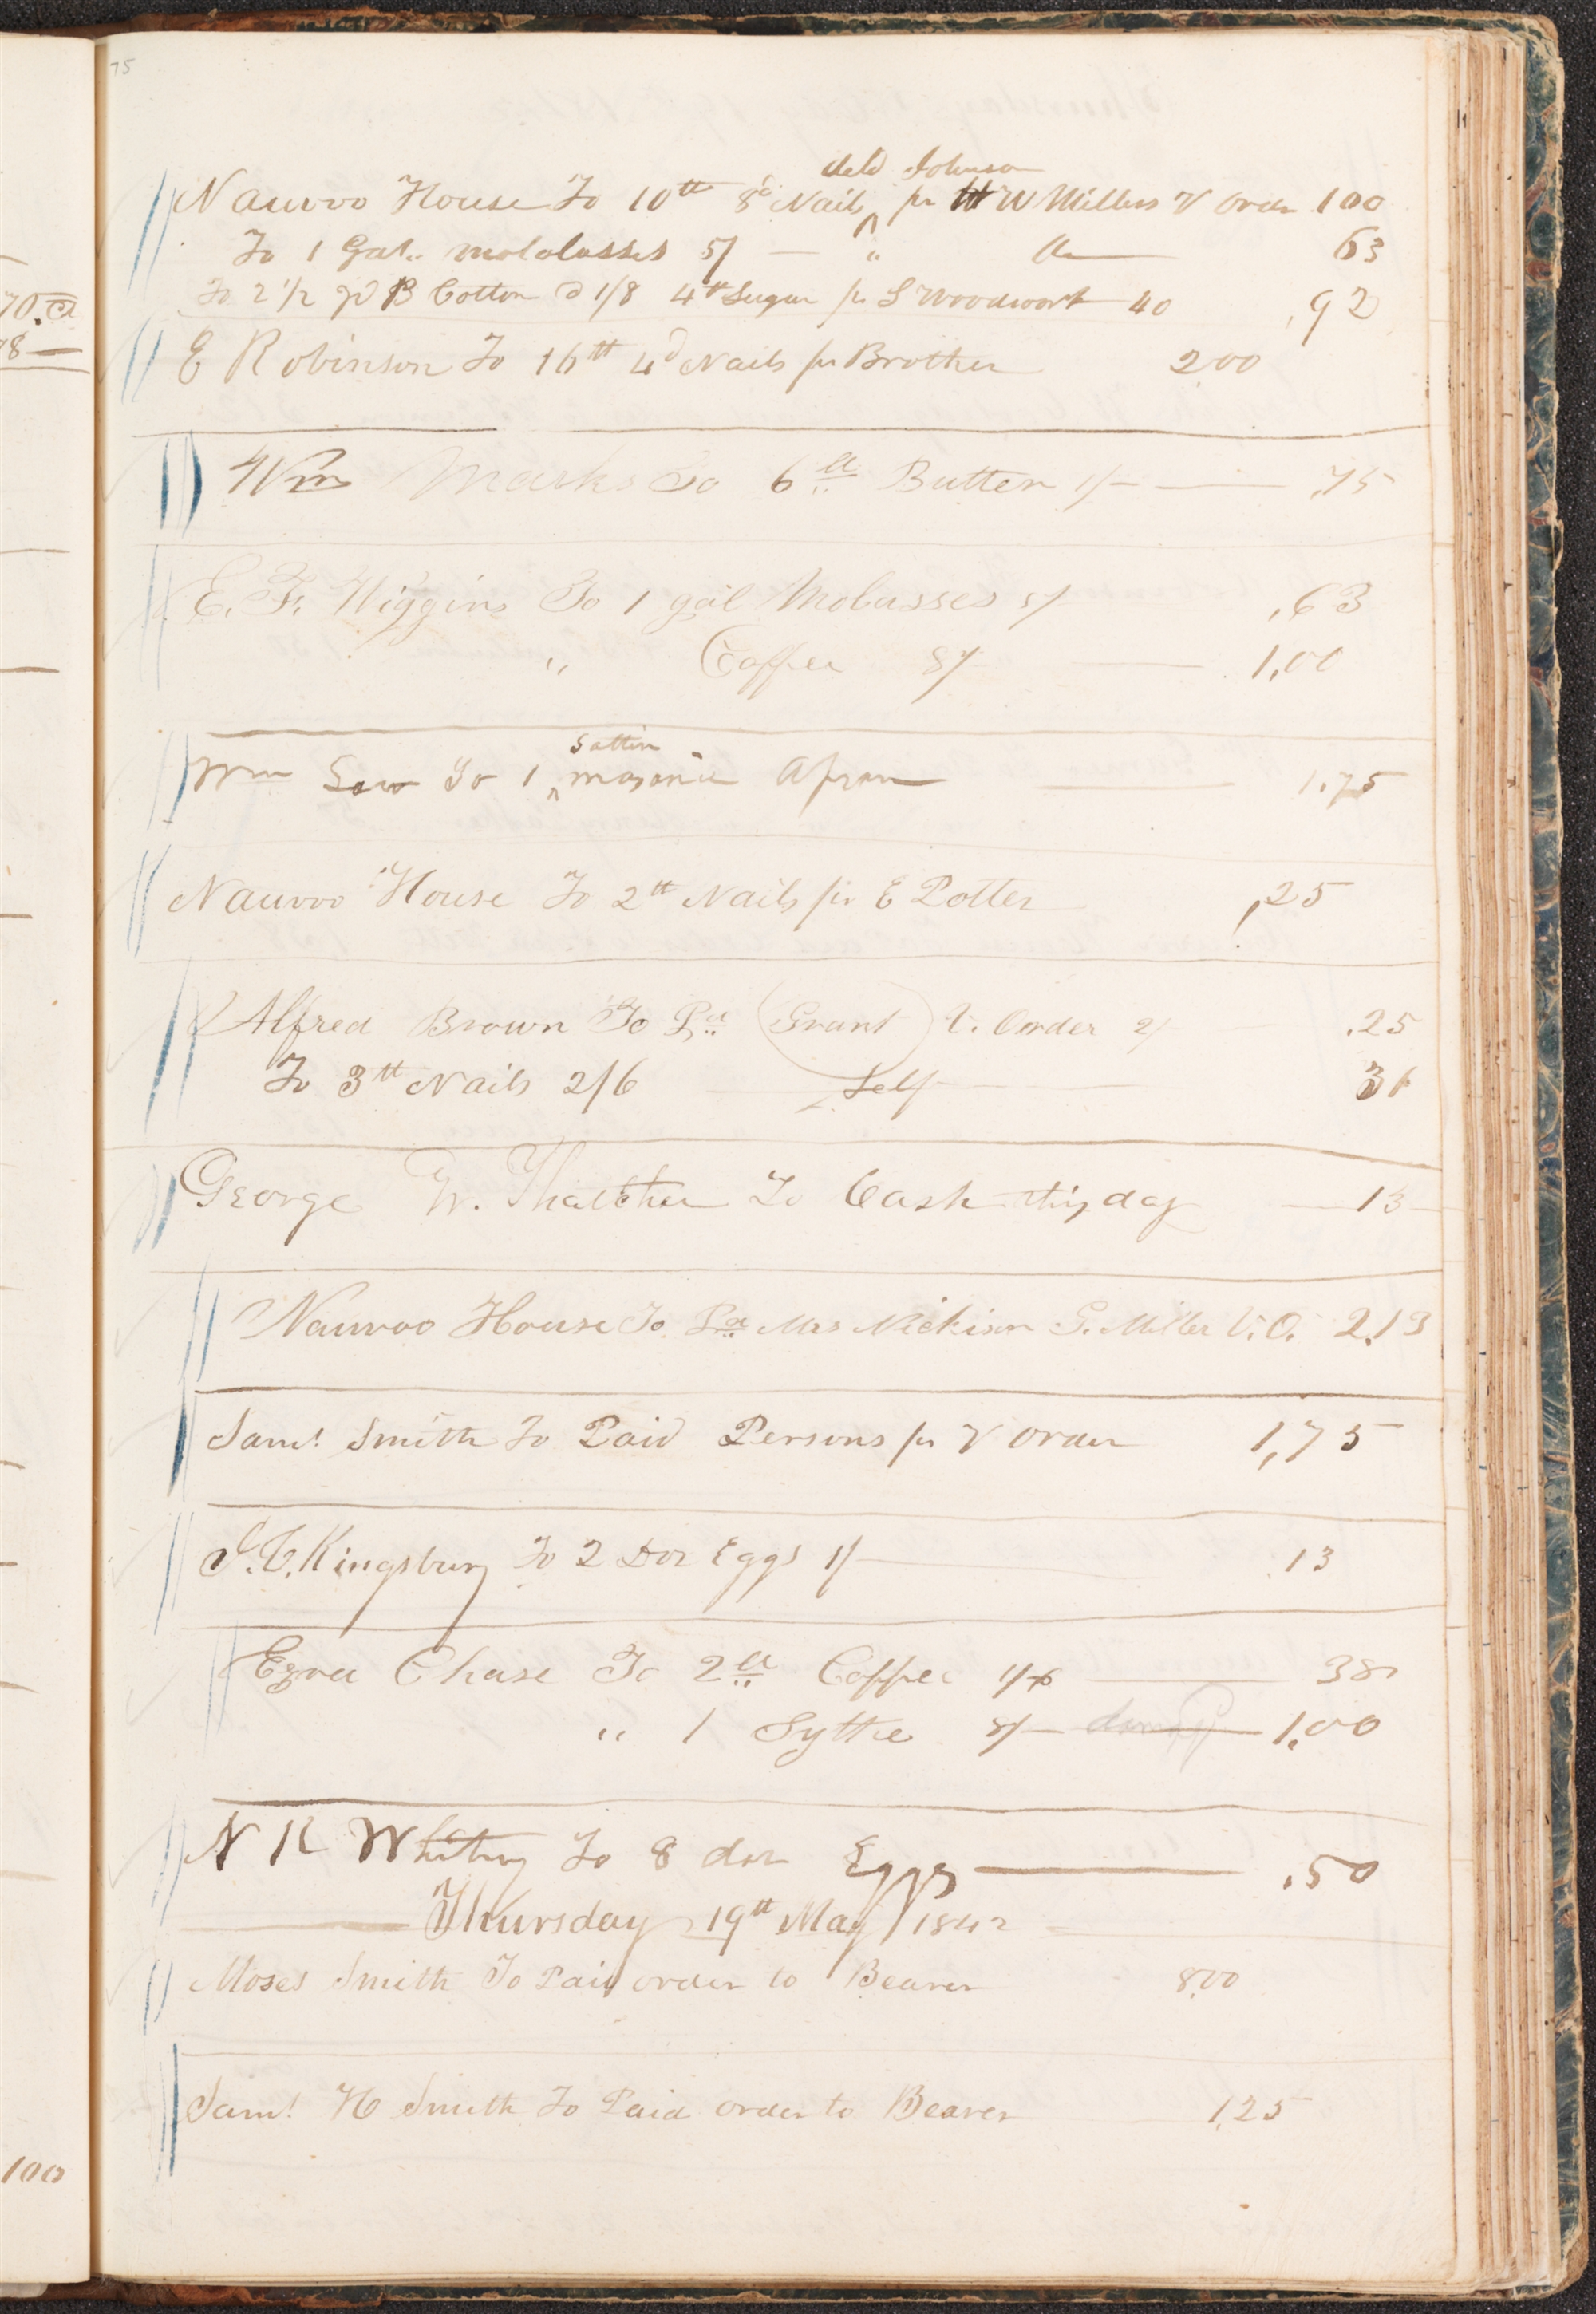 75
70.
78
Deld Johnson
Nauvoo House To 10tt 8d Nails pr W Millers V Order 100
To 1 Gal. mololasses 5/ — " Do 63
To 2 1/2 yd B Cotton @ 1/8 4tt Sugar pr S Woodwort 40 ,92
E Robinson To 16tt 4d Nails pr Brother 200
Wm Marks To 6 lb Butter 1/- ,75
E. F. Wiggins To 1 gal Molasses 5/ ,63
" Coffee 8/ 1,00
Sattin
Wm Law To 1 ^ masonic Apron 1.75
Nauvoo House To 2tt Nails pr E Potter ,25
Alfred Brown To Pd (Grant) V. Order 2/ .25
To 3tt Nails 2/6 Self 31
George W. Thatcher To Cash this day 13
Nauvoo House To Pd Mrs Nickison G. Miller V. O. 2.13
Saml Smith To Paid Persons pr V Order 1,75
J. C. Kingsbury To 2 Doz Eggs 1/ 13
Ezra Chase To 2 lb Coffee 1/6 38
" 1 Sythe 8/- 1.00
N K Whitney To 8 doz Eggs .50
Thursday 19tt May 1842
Moses Smith To Paid order to Bearer 8.00
Saml H Smith To Paid order to Bearer 1.25
100